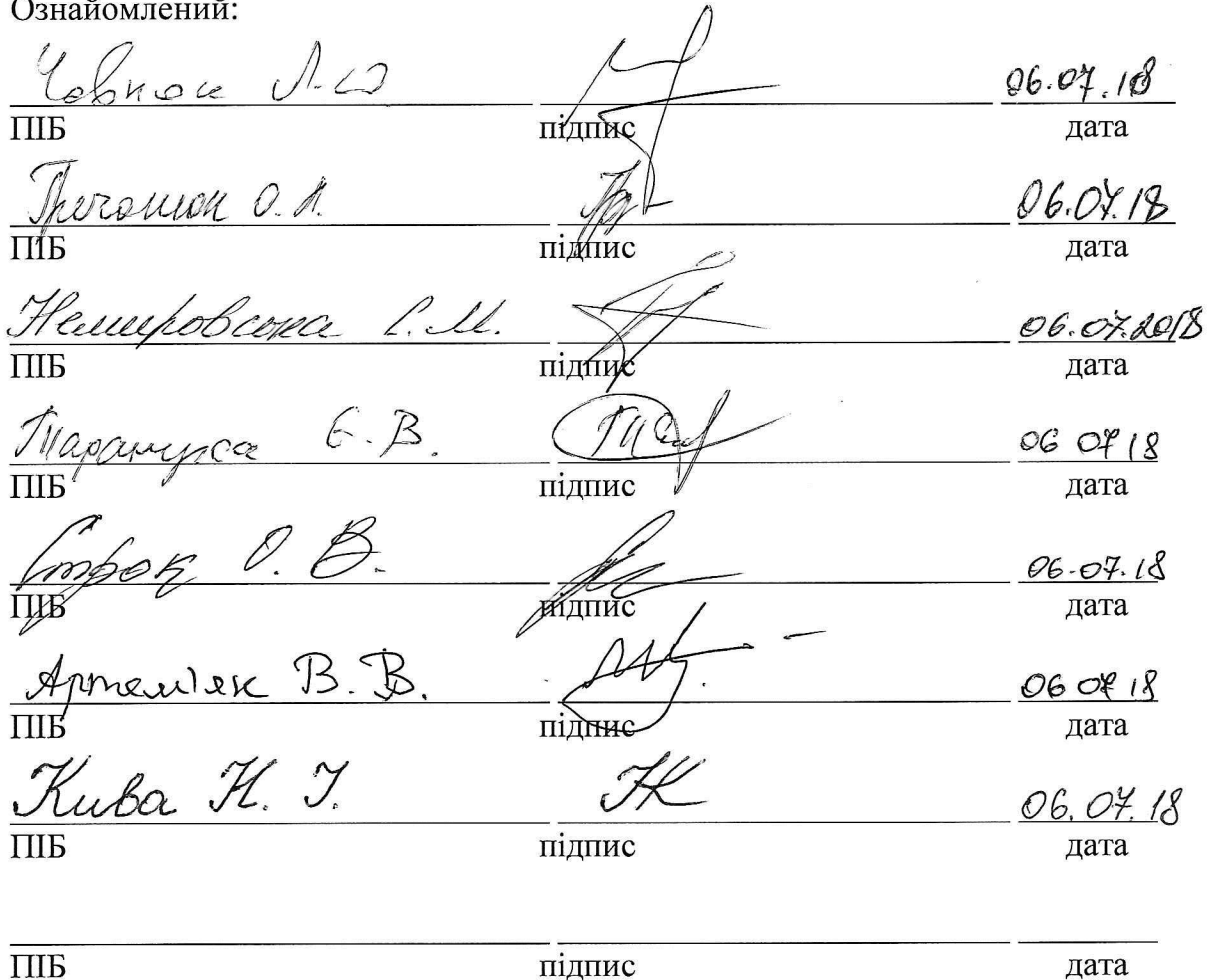 Ознайомлений:
Човнюк Л.Ю 06.07.18
ПІБ підпис дата
О. А. 06.07.18
ПІБ підпис дата
Немировська С.М. 06.07.2018
ПІБ підпис дата
Тарануха Є.В. 06 07 18
ПІБ підпис дата
Строк О. В. 06.07.18
ПІБ підпис дата
Артем'як В. В. 06 07 18
ПІБ підпис дата
Кива Н. І. НК 06.07.18
ПІБ підпис дата
ПІБ підпис дата